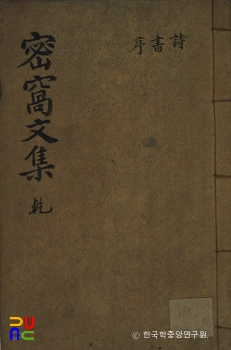 密窩文集 乾
詩書序
ⓒ 한국학중앙연구원